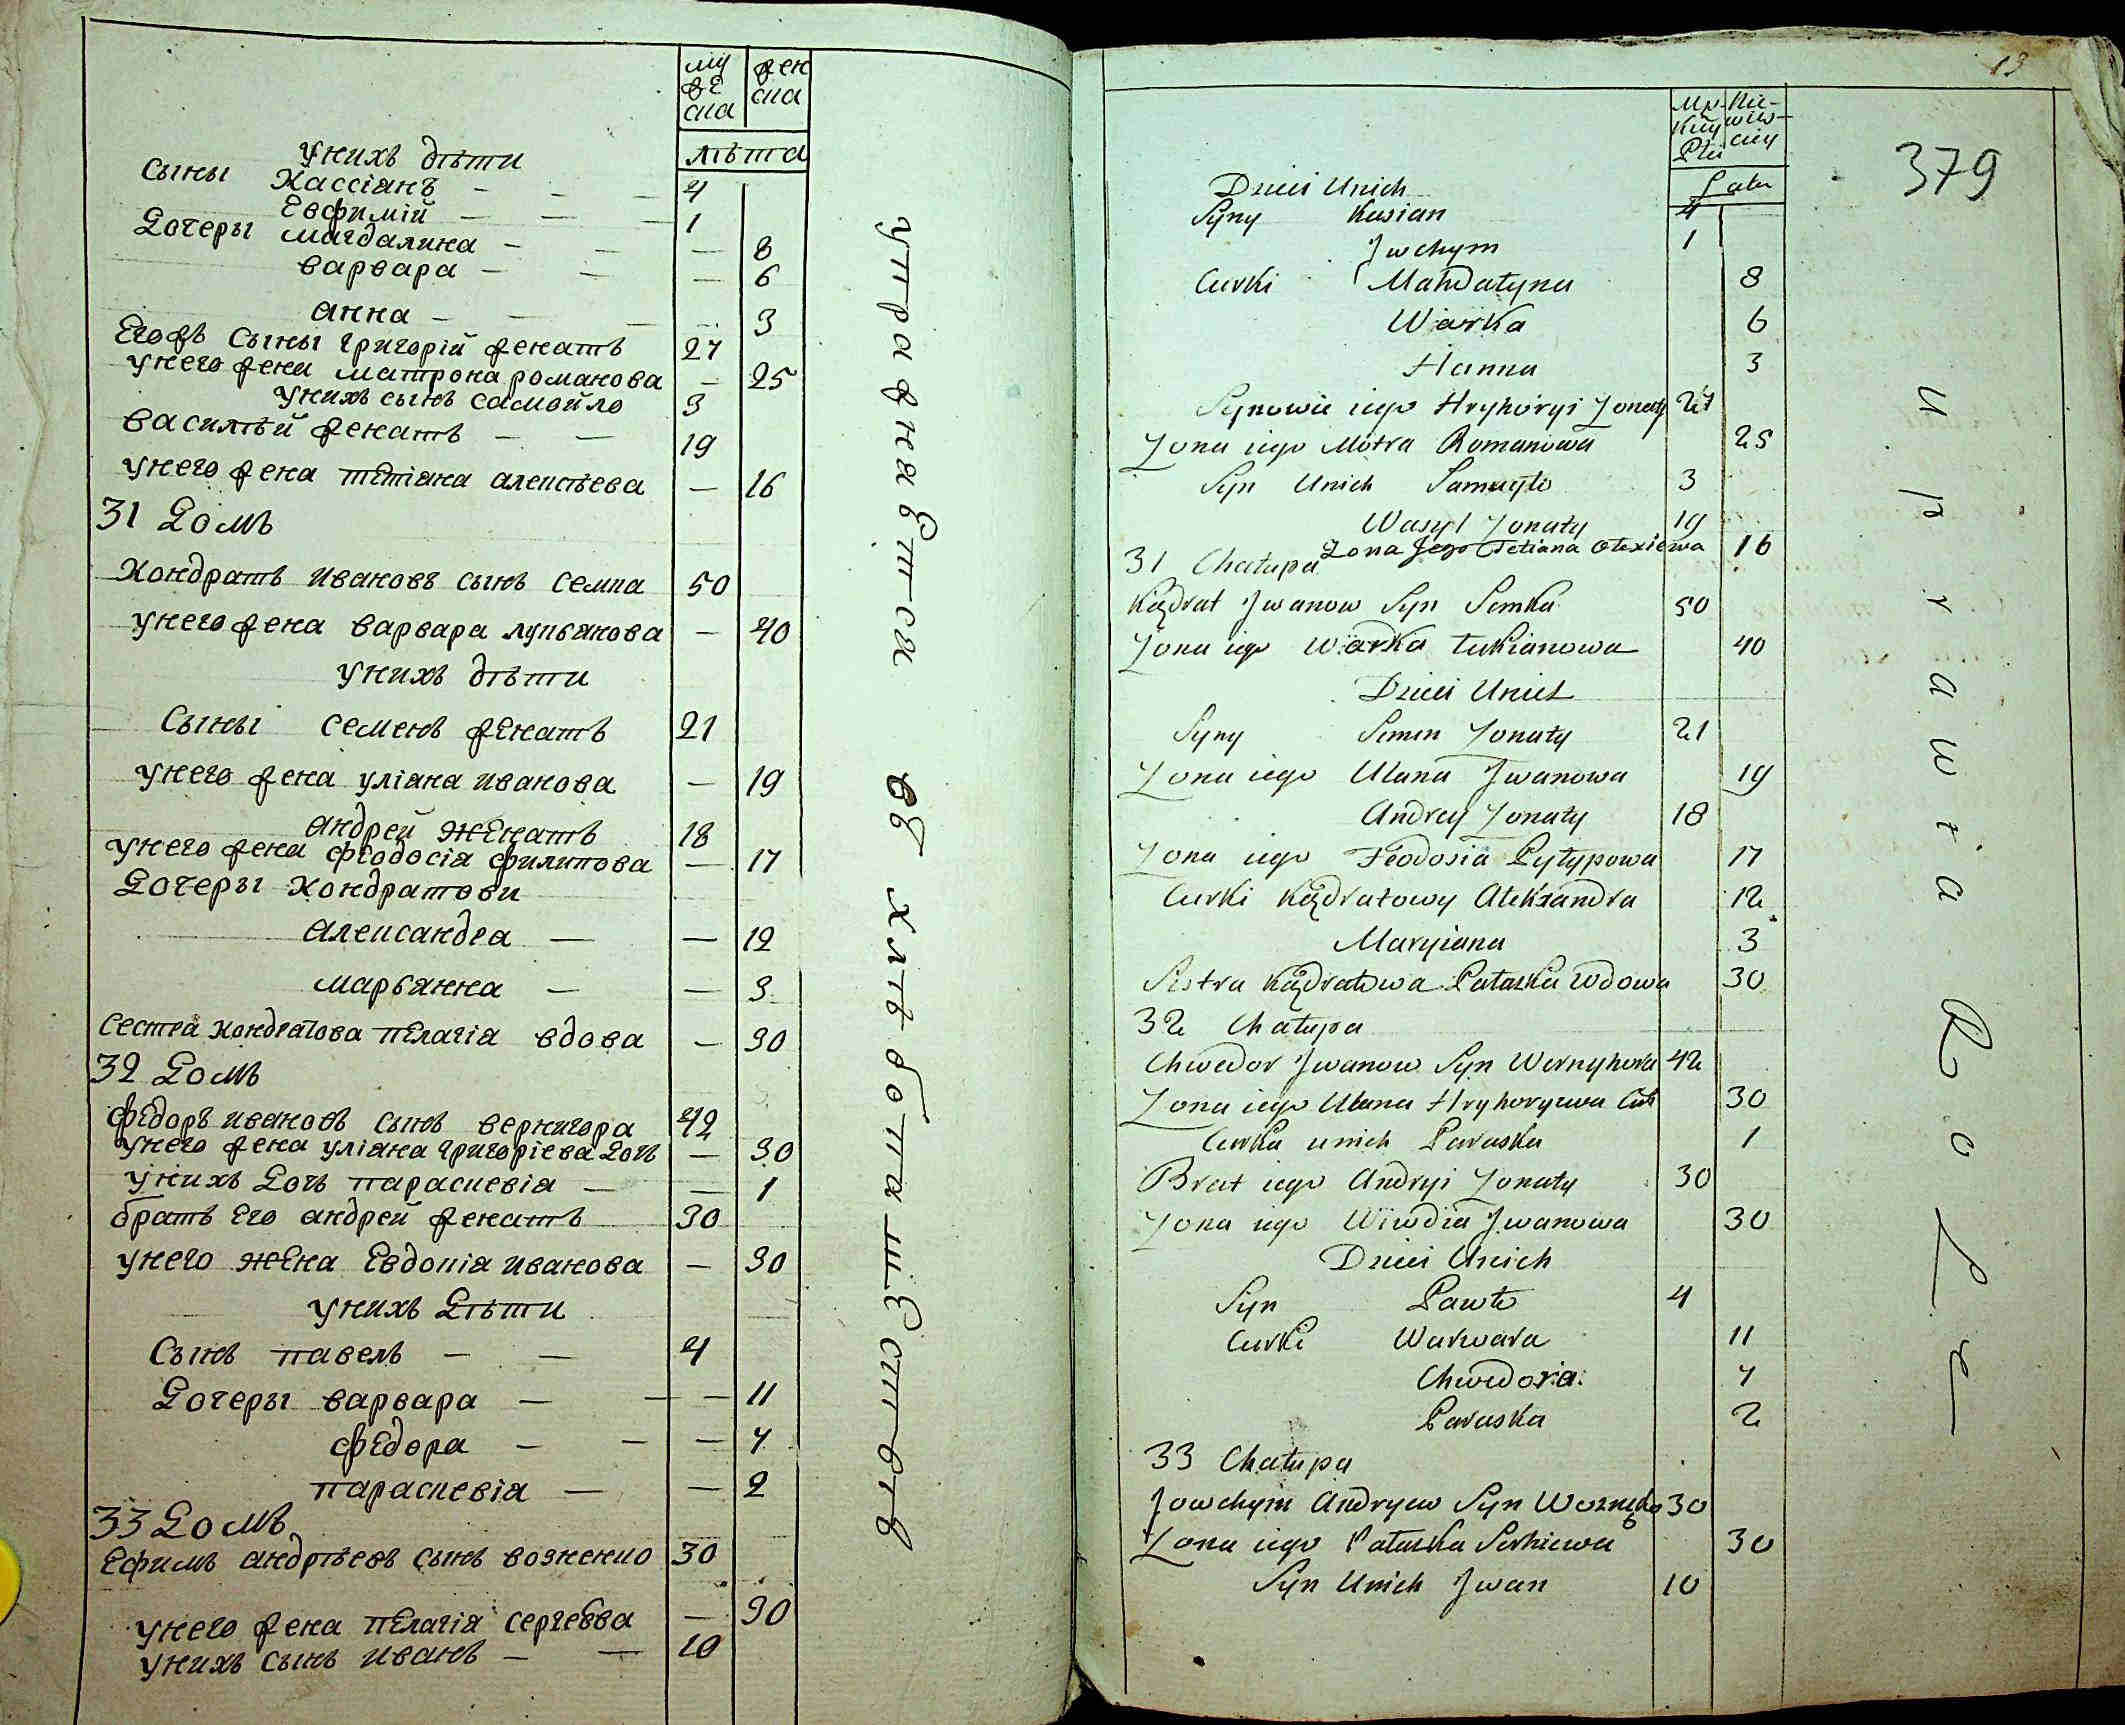 му
же
ска
жен
ска
лѣта
унихъ дѣти
сыны Кассіанъ — — — 4
Евфимій — — — 1
Дочеры магдалина — — — 8
варвара — — — 6
анна — — — 3
Егожъ сыны григорій женатъ 27
унего жена матрона романова — 25
унихъ сынъ самойло 3
василѣй женатъ — — 19
унего жена тетіана алексѣева — 16
31 Домъ
Кондратъ ивановъ сынъ семка 50
унего жена варвара лукьянова — 40
унихъ дѣти
Сыны семенъ женатъ 21
унего жена уліана иванова — 19
андрей женатъ 18
унего жена феодосія филипова — 17
Дочеры кондратови
александра — — 12
марьянна — — 3
сестра кондратова пелагія вдова — 30
32 Домъ
федоръ ивановъ сынъ вернигора 42
унего жена уліана григоріева дочь — 30
унихъ дочь параскевія — — 1
братъ его андрей женатъ 30
унего жена Евдокія иванова — 30
унихъ Дѣти
Сынъ павелъ — — 4
Дочеры варвара — — — 11
федора — — — 7
параскевія — — 2
33 Домъ
Ефимъ андрѣевъ сынъ возненко 30
унего жена пелагія сергеева — 30
унихъ сынъ иванъ — — 10
упражнается въ хлѣбопашествѣ
13
379
Mu- Nie-
Latu
Dzieci Unich
Syny Kasian 4
Jwchym 1
Curki Mahdałyna 8
Warka 6
Hanna 3
Synowie iego Hryhoryi Żonaty 27
Żona iego Motra Romanowa 25
Syn Unich Samuyło 3
Wasyl Żonaty 19
Żona Jego Tetiana Olexiewa 16
31 Chałupa
Kądrat Jwanow Syn Semka 50
Żona iego Warka Łukianowa 40
Dzieci Unich
Syny Semen Żonaty 21
Żona iego Ulana Jwanowa 19
Andrey Żonaty 18
Żona iego Feodosia Pyłypowa 17
Curki Kądratowy Aleksandra 12
Maryiana 3
Sestra Kądratowa Pałaszka Wdowa 30
32 Chałupa
Chwedor Jwanow Syn Wernyhora 42
Żona iego Ulana Hryhoryewa Cur 30
Curka unich Paraska 1
Brat iego Andryi Żonaty 30
Żona iego Wiwdia Jwanowa 30
Dzieci Unich
Syn Pawło 4
Curki Warwara 11
Chwedora 7
Paraska 2
33 Chałupa
Jowchym Andryew Syn Woznenko 30
Żona iego Pałaszka Serhiewa 30
Syn Unich Jwan 10
uprawia Role